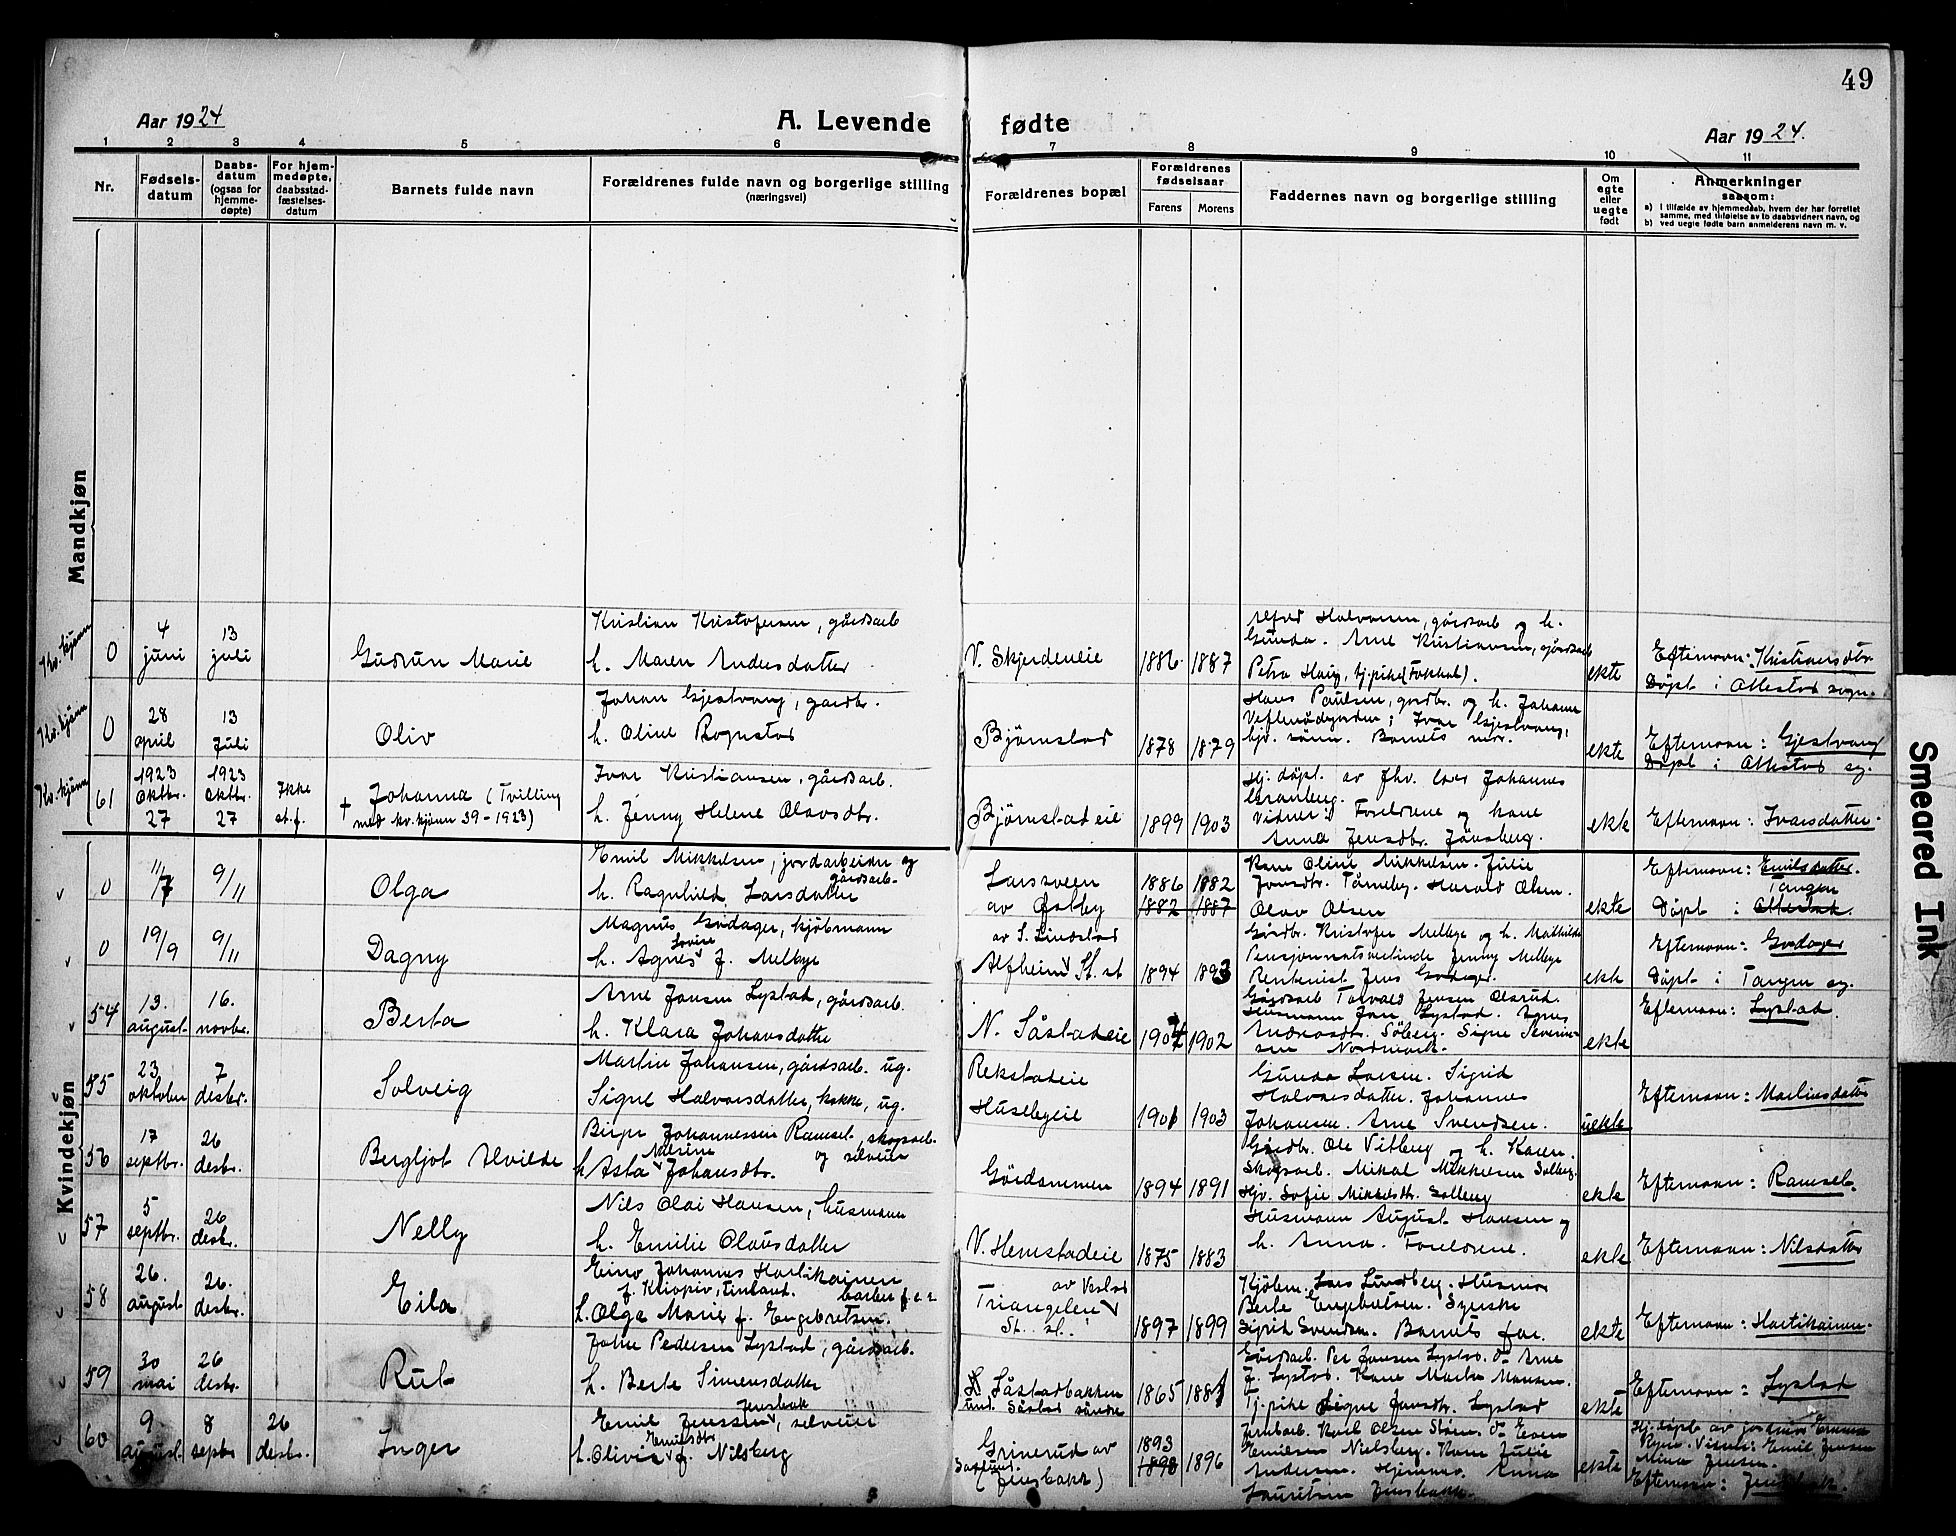 49
Aar 1924
A. Levende fødte
Aar 1924.
1 2 3 4 5 6 7 8 9 10 11
Nr.
Fødsels-
datum
Daabs-
datum
(ogsaa for
hjemme-
døpte)
For hjem-
medøpte,
daabsstad-
fæstelses-
datum
Barnets fulde navn
Forældrenes fulde navn og borgerlige stilling
(næringsvei)
Forældrenes bopæl
Forældrenes
fødselsaar
Farens Morens
Faddernes navn og borgerlige stilling
Om
egte
eller
uegte
født
Anmerkninger
saasom:
a) I tilfælde av hjemmedaab, hvem der har forrettet
samme, med tilføielse av to daabsvidners navn, og
b) ved uegte fødte barn anmelderens navn m. v.
Mandkjøn
Kv. kjønn
0
4
juni
13
juli
Gudrun Marie
Kristian Kristofersen, gårdsarb
h. Maren Andersdatter
V. Skjerdeneie
1886 1887
Alfred Halvorsen, gårdsarb og h.
Gunda. Arne Kristiansen, gårdsarb
Petra Haug, tj.pike
ekte
Efternavn: Kristiansdtr
Døpt i Ottestad sogn.
Kv. kjønn
0
28
april
13
juli
Oliv
Johan Gjestvang, gardbr.
h. Oline Rognstad
Bjørnstad
1878 1879
Hans Paulsen, gardbr. og h. Johanne
Ivar Gjestvang,
Barnets mor.
ekte
Efternavn: Gjestvang
Døpt i Ottestad sg.
Kv. kjønn
61
1923
Oktbr.
27
1923
Oktbr.
27
Ikke
st.f.
† Johanna (Tvilling
med kv. kjønn 39-1923)
Ivar Kristiansen, gårdsarb.
h. Jenny Helene Olavsdtr.
Bjørnstadeie
1899 1903
Hj. døpt av Johannes
Granberg.
Vidner: Foreldrene og kone
Anna Jensdtr. Jønsberg.
ekte
Efternavn: Ivarsdatter.
Kvindekjøn
0
11/7
9/11
Olga
Emil Mikkelsen, jordarbeider og
gårdsarb.
h. Ragnhild Larsdatter
Larsveen
av Østby
1886 1882
1882 1887
Kone Oline Mikkelsen. Julie
Jonsdtr. Tånneby. Harald Olsen.
Olav Olsen
ekte
Efternavn: Emilsdatter.
Tangen
Døpt i Ottestad.
0
19/9
9/11
Dagny
Magnus Godager, kjøbmann
Lovise
h. Agnes f. Melbye
av S. Lindstad
Alfheim St. st
1894 1893
Gårdbr. Kristofer Melbye og h. Mathilde
Pensjonatsvertinde Jenny Melbye
Rentenist Jens Godager.
ekte
Efternavn: Godager
Døpt i Tangen sg.
54
13.
august
16.
novbr.
Berta
Arne Jensen Lystad, gårdsarb.
h. Klara Johansdatter
N. Såstadeie
1902
Gårdsarb Torvald Jensen Olsrud.
Husmann Jon Lystad. Agnes
Andreasdtr. Søberg. Signe Severin-
sen Nordmark.
ekte
Efternavn: Lystad.
55
23
oktober
7
desbr.
Solveig
Martin Johansen, gårdsarb. ug.
Signe Halvorsdatter, kokke, ug.
Rekstadeie
Husebyeie
1901 1903
Gunda Larsen. Sigrid
Halvorsdatter. Johannes
Johansen. Arne Svendsen.
uekte
Efternavn: Martinsdatter
56
17
septbr.
26
desbr.
Bergljot Alvilde
Birger Johannessen Ramset, skogsarb.
og selveier
h Asta Johansdtr.
Gårdsammen
1894 1891
Gårdbr. Ole Vitberg og h. Karen.
Skogsarb. Mikal Mikkelsen Solberg.
Hjv. Sofie Mikkelsdtr. Solberg
ekte
Efternavn: Ramset.
57
5
septbr.
26
desbr.
Nelly
Nils Olai Hansen, husmann
h. Emilie Olausdatter
V. Hemstadeie
1875 1883
Husmann August Hansen og
h. Anna. Foreldrene.
ekte
Efternavn: Nilsdatter
58
26.
august
26.
desbr.
Eila
Eino Johannes Hartikainen
f. Kliopio, Finland. barber f.e.r.
h. Olga Marie f. Engebretsen.
av Vestad
Triangelen
St. st.
1897 1899
Kjøbm. Lars Lundberg. Husmor
Berte Engebretsen. Syerske
Sigrid Svendsen. Barnets far.
ekte
Efternavn: Hartikainen
59
30
mai
26
desbr.
Rut
John Pedersen Lystad, gårdsarb.
h. Berte Simensdatter
Såstadbakken
und. Såstad søndre
1865
Gårdsarb. Per Jonsen Lystad. Do Arne
J. Lystad. Kone Marta Hansen.
Tj.pike Signe Jensdtr. Lystad
ekte
Efternavn: Lystad
60
9
august
8
septbr
26
desbr.
Inger
Jensbak
Emil Jenssen, selveier
Emilsdtr
h. Olivia f. Nilsberg
Grinerud av
(Jensbakk)
1893
1898 1896
Jernbarb. Karl Olsen Do Even
Emilsen Nielsberg. Kone Julie
Andersen. Hjemmev. Anna
Lauritsen Jensbakk.
ekte
Hj. døpt av jordmor Emma
Emil Jensen
Mina Jensen.
Efternavn: Jensbakk.
Smeared Ink